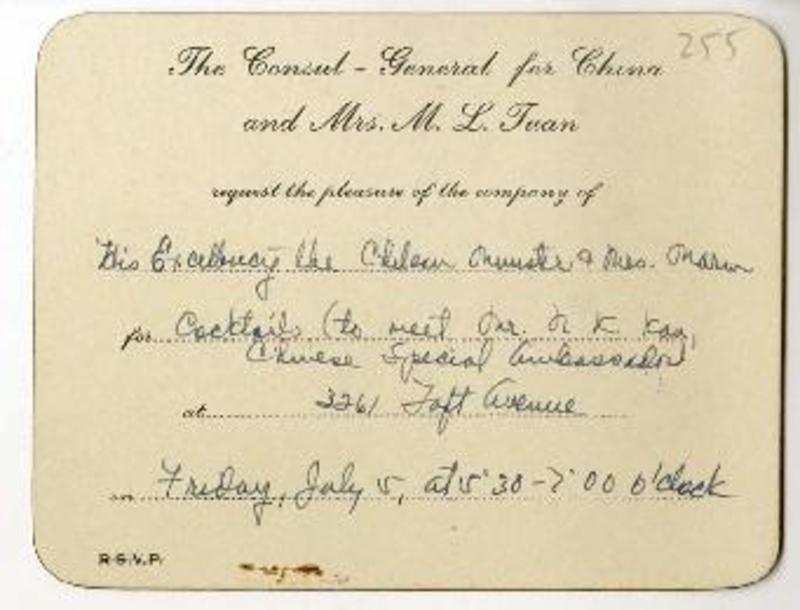 255
The Consul - General for China
and Mrs. M. L. Tuan
request the pleasure of the company of
His Excellency the Chilean Minister & Mrs. Marin
for Cocktails (to meet Mr. N K Kan,
Chinese Special Ambassador
at 3261 Taft Avenue
on Friday, July 5, at 5:30 - 7:00 o'clock
R.S.V.P.